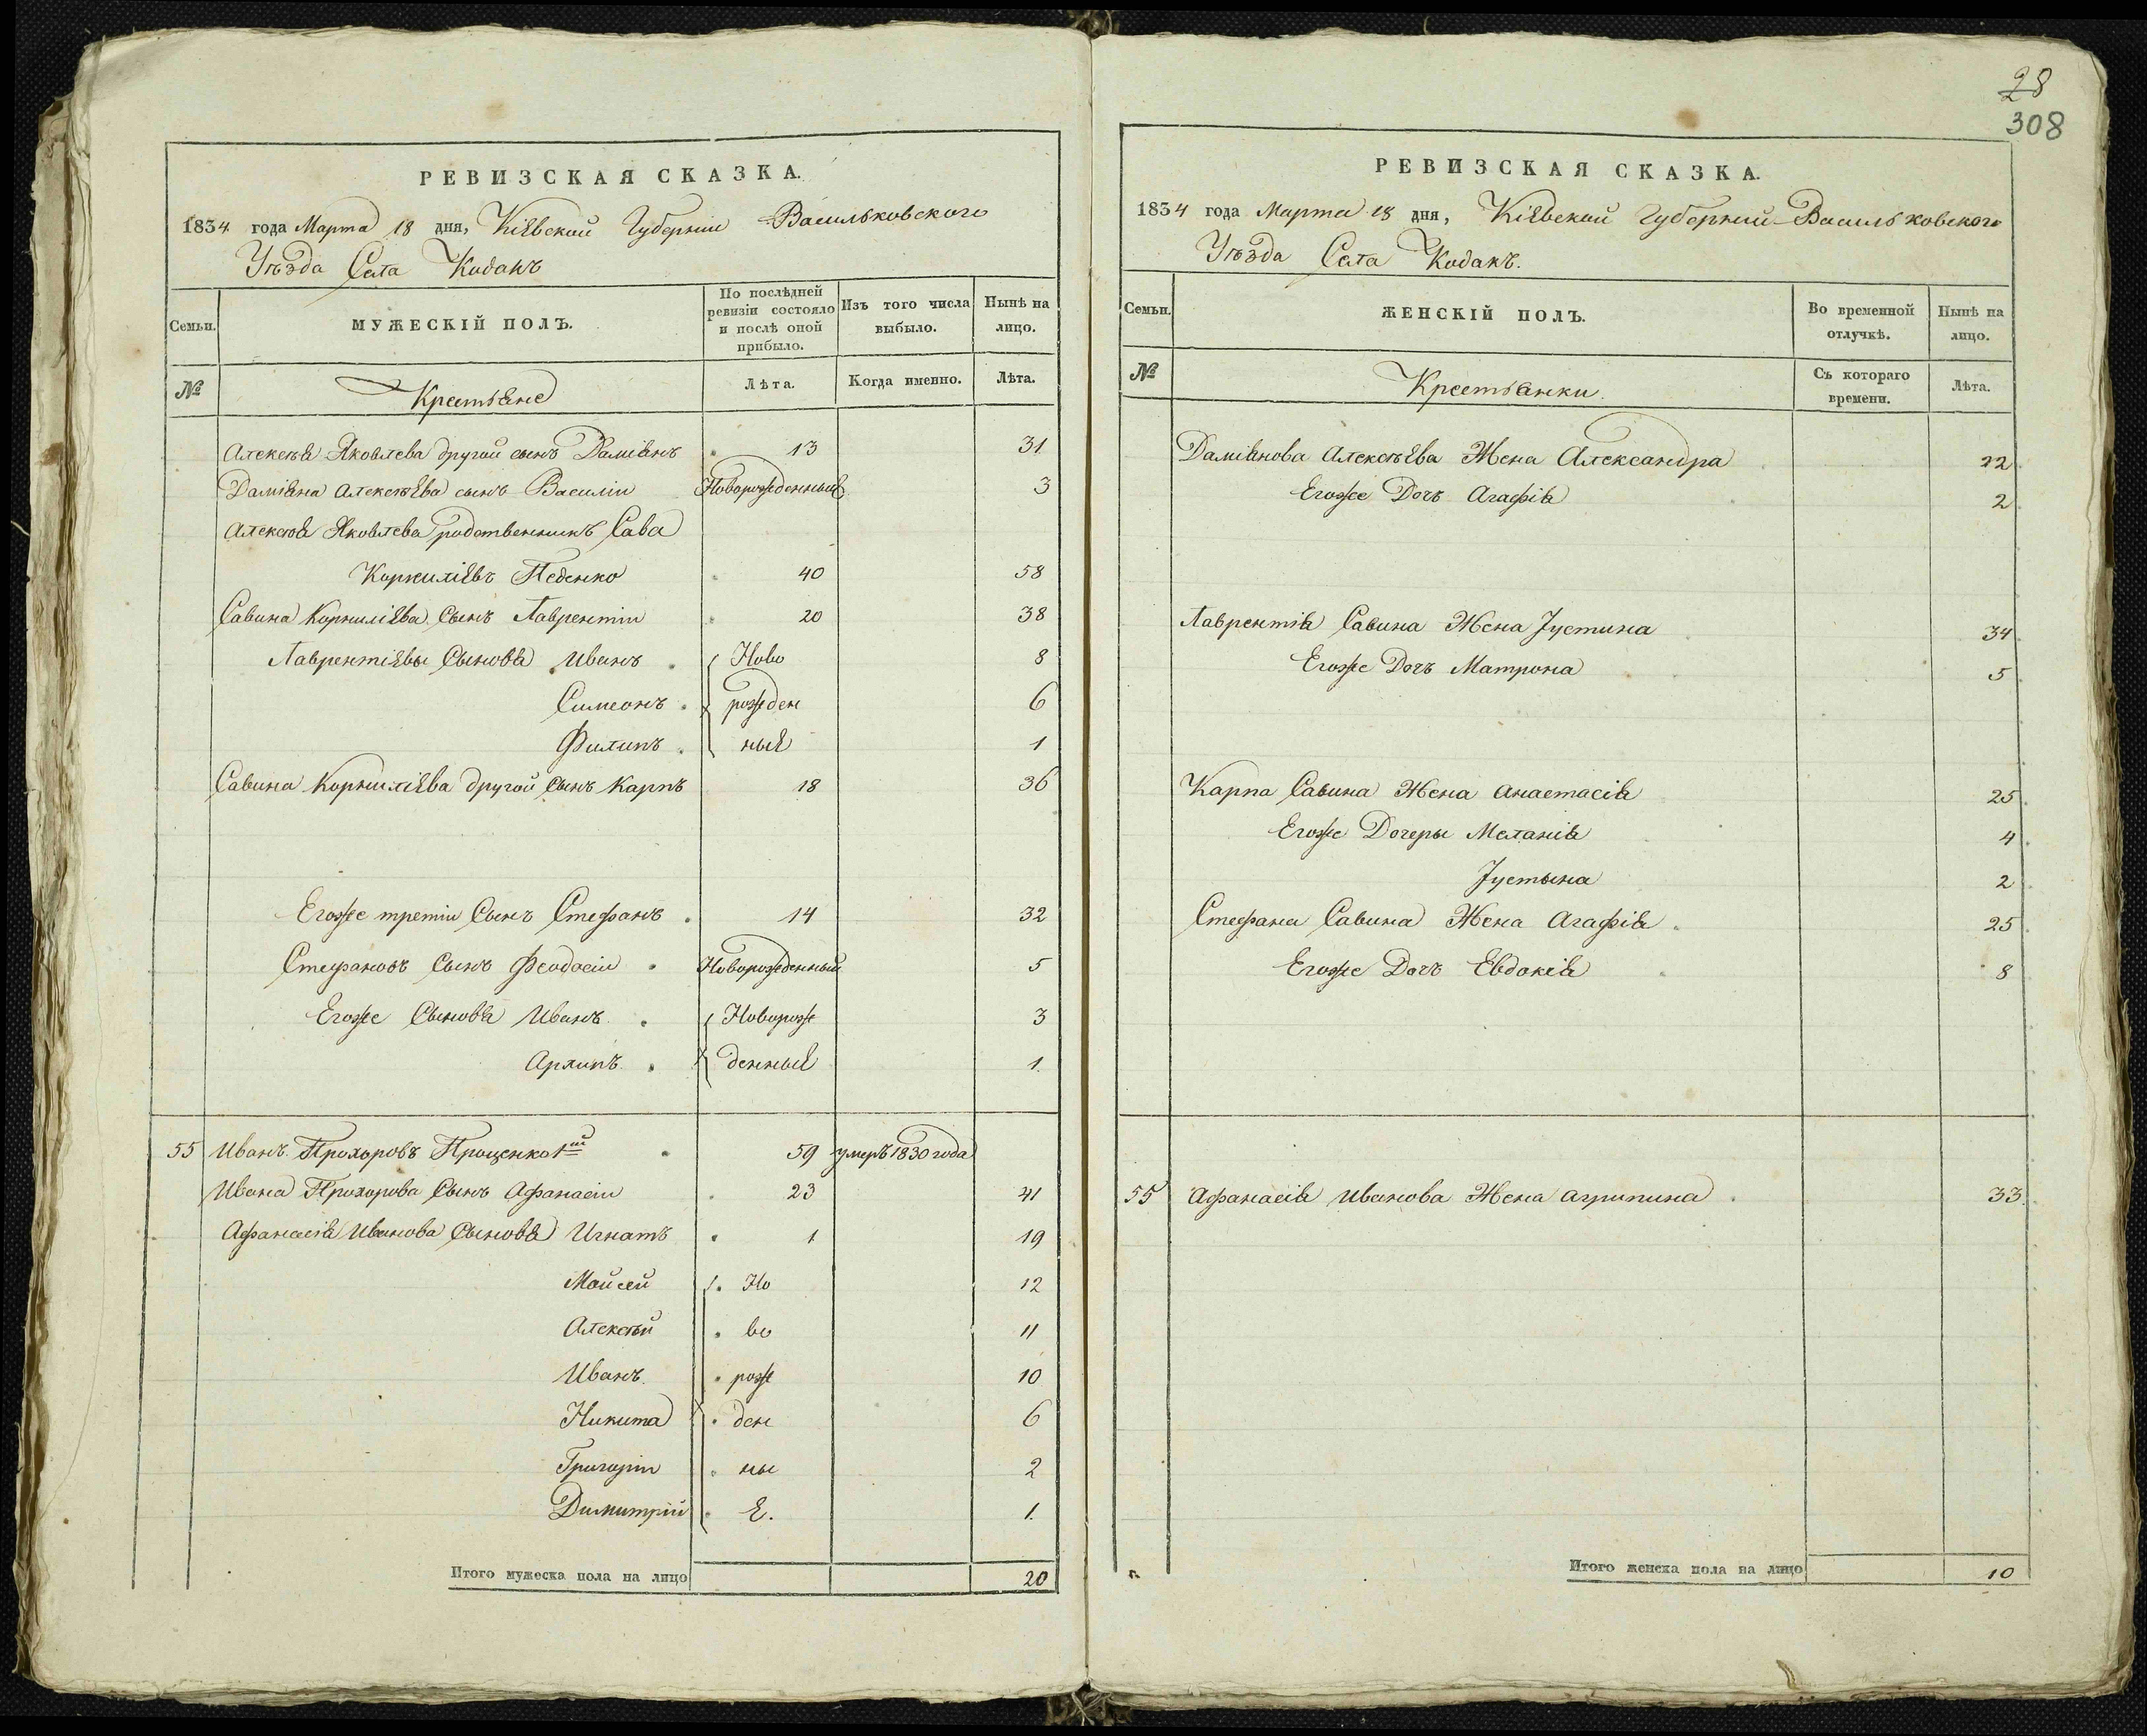 РЕВИЗСКАЯ СКАЗКА.
1834 года Марта 18 дня, Кіевской Губерніи Васильковскаго
Уѣзда Села Кодакъ
Семьи.
МУЖЕСКІЙ ПОЛЪ.
По послѣдней ревизіи состояло и послѣ оной прибыло.
Изъ того числа выбыло.
Нынѣ на лицо.
№
Крестьяне
Лѣта.
Когда именно.
Лѣта.
Алексѣя Яковлева другой сынъ Даміянъ 13 31
Даміяна Алексѣева сынъ Василіи Новорожденный 3
Алексѣя Яковлева родственникъ Сава
Корниліевъ Педенко 40 58
Савина Корниліева Сынъ Лаврентіи 20 38
Лаврентіевы Сыновя Иванъ Ново 8
Симеонъ рожден 6
Филипъ ные 1
Савина Корниліева другой Сынъ Карпъ 18 36
Егожъ третіи Сынъ Стефанъ 14 32
Стефановъ Сынъ Феодосіи Новорожденный 5
Егоже Сыновя Иванъ Новорож 3
Архипъ денные 1.
55 Иванъ Прохоровъ Проценко 1й 59 умеръ 1830 года
Ивана Прохорова Сынъ Афанасіи 23 41
Афанасія Иванова Сыновя Игнатъ 1 19
Мойсей Но 12
Алексѣй во 11
Иванъ рож 10
Никита ден 6
Григоріи ны 2
Димитрій е. 1.
Итого мужеска пола на лицо 20
28
308
РЕВИЗСКАЯ СКАЗКА.
1834 года Марта 18 дня, Кіевской Губерніи Васильковскаго
Уѣзда Села Кодакъ.
Семьи.
ЖЕНСКІЙ ПОЛЪ.
Во временной отлучкѣ.
Нынѣ на лицо.
№
Крестьянки.
Съ котораго времени.
Лѣта.
Даміянова Алексѣева Жена Александра 22
Егоже Дочъ Агафія 2
Лаврентія Савина Жена Јустина 34
Егоже Дочъ Матрона 5
Карпа Савина Жена Анастасія 25
Егоже Дочеры Меланія 4
Јустына 2
Стефана Савина Жена Агафія 25
Егоже Дочъ Евдокія 8
55 Афанасія Иванова Жена Агрипина 33
Итого женска пола на лицо 10